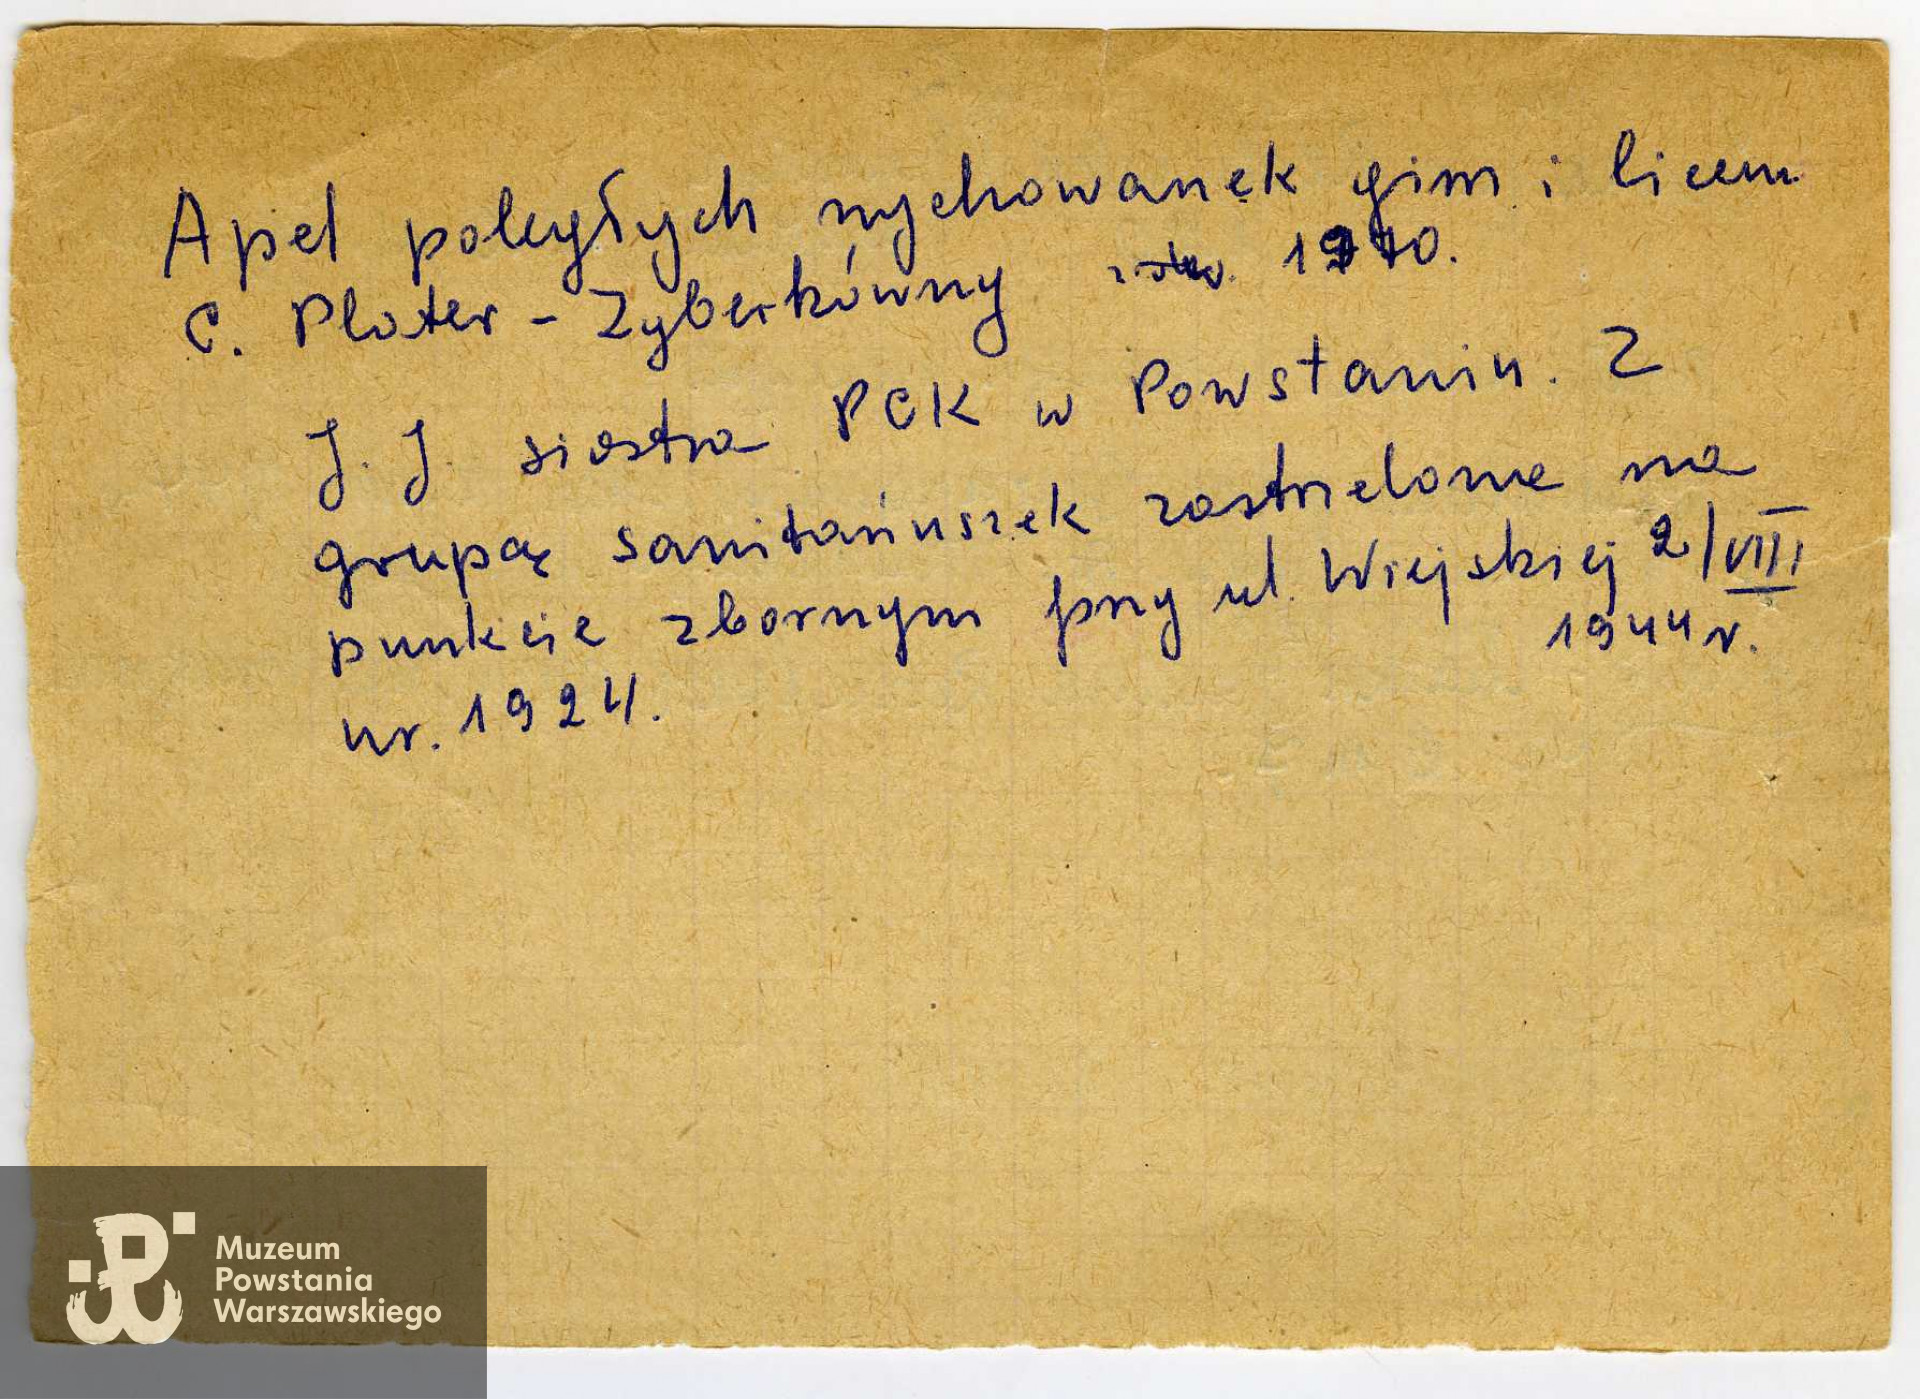 Apel poległych wychowanek gim. i liceum
C. Plater-Zyberkówny 1970.
J. J. siostra PCK w Powstaniu. Z
grupą sanitariuszek zastrzelona na
punkcie zbornym przy ul. Wiejskiej 2/VIII
1944 r.
ur. 1924.
Muzeum
Powstania
Warszawskiego